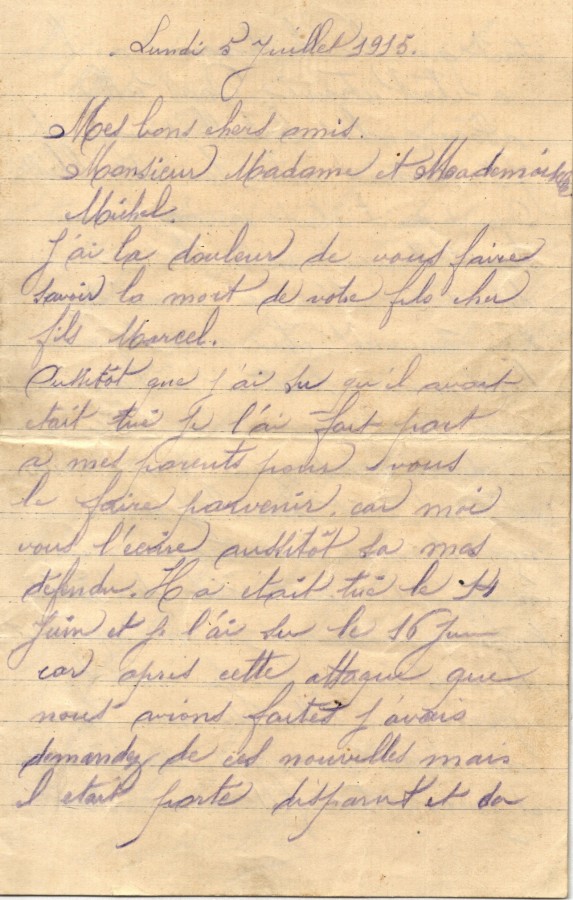 Lundi 5 Juillet 1915.
Mes bons chers amis.
Monsieur Madame et Mademoiselle
Michel.
J'ai la douleur de vous faire
savoir la mort de votre fils cher
fils Marcel.
Aussitôt que j'ai su qu'il avait
était tué je l'ai fait part
a mes parents pour vous
le faire parvenir, car moi
vous l'ecrire aussitôt sa mes
défendu. Il a était tué le 14
Juin et je l'ai su le 16 Juin
car apris cette attaque que
nous avions faites j'avais
demandez de ces nouvelles mais
il etait porté disparut et